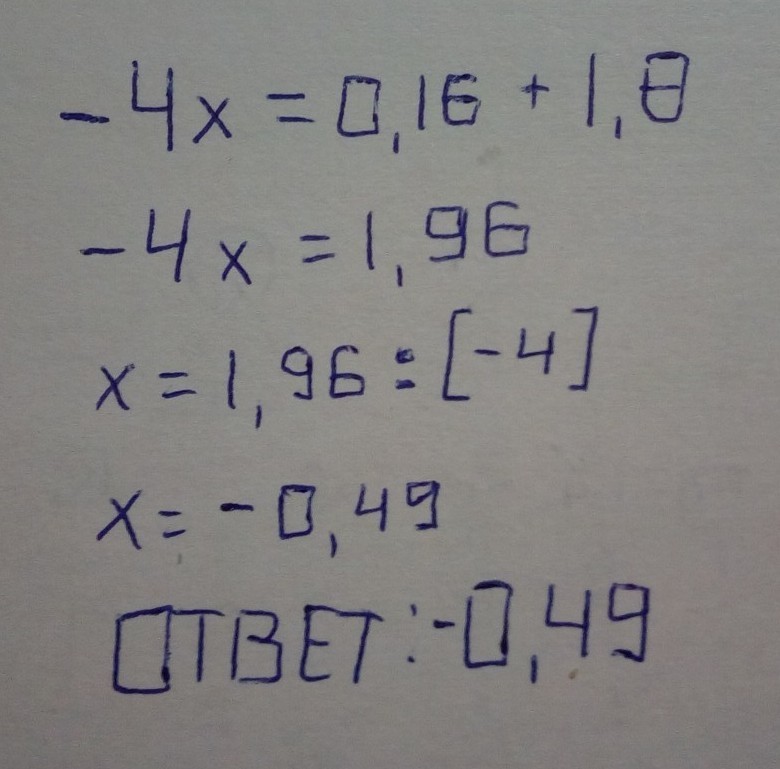 -4x = 0,16 + 1,8
-4x = 1,96
x = 1,96 : [-4]
x = -0,49
ОТВЕТ: -0,49